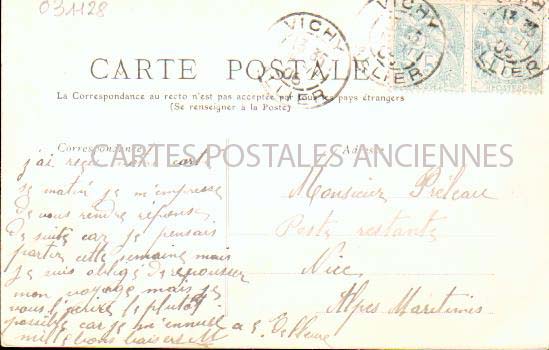 031128
VICHY
13 35
05
ALLIER
VICHY
05
ALLIER
VICHY
13 35
05
ALLIER
CARTE POSTALE
La Correspondance au recto n'est pas acceptée par tous les pays étrangers
(Se renseigner à la Poste)
Correspondance
Adresse
CARTES POSTALES ANCIENNES
j'ai reçu carte
ce matin je m'empresse
de vous rendre réponse
de suite car je pensais
partir cette semaine mais
je suis obligé de repousser
mon voyage mais je
vous l'écrire le plutôt
possible car je m'ennuie a
mille bons baisers M
Monsieur Préleau
Poste restante
Nice
Alpes Maritimes